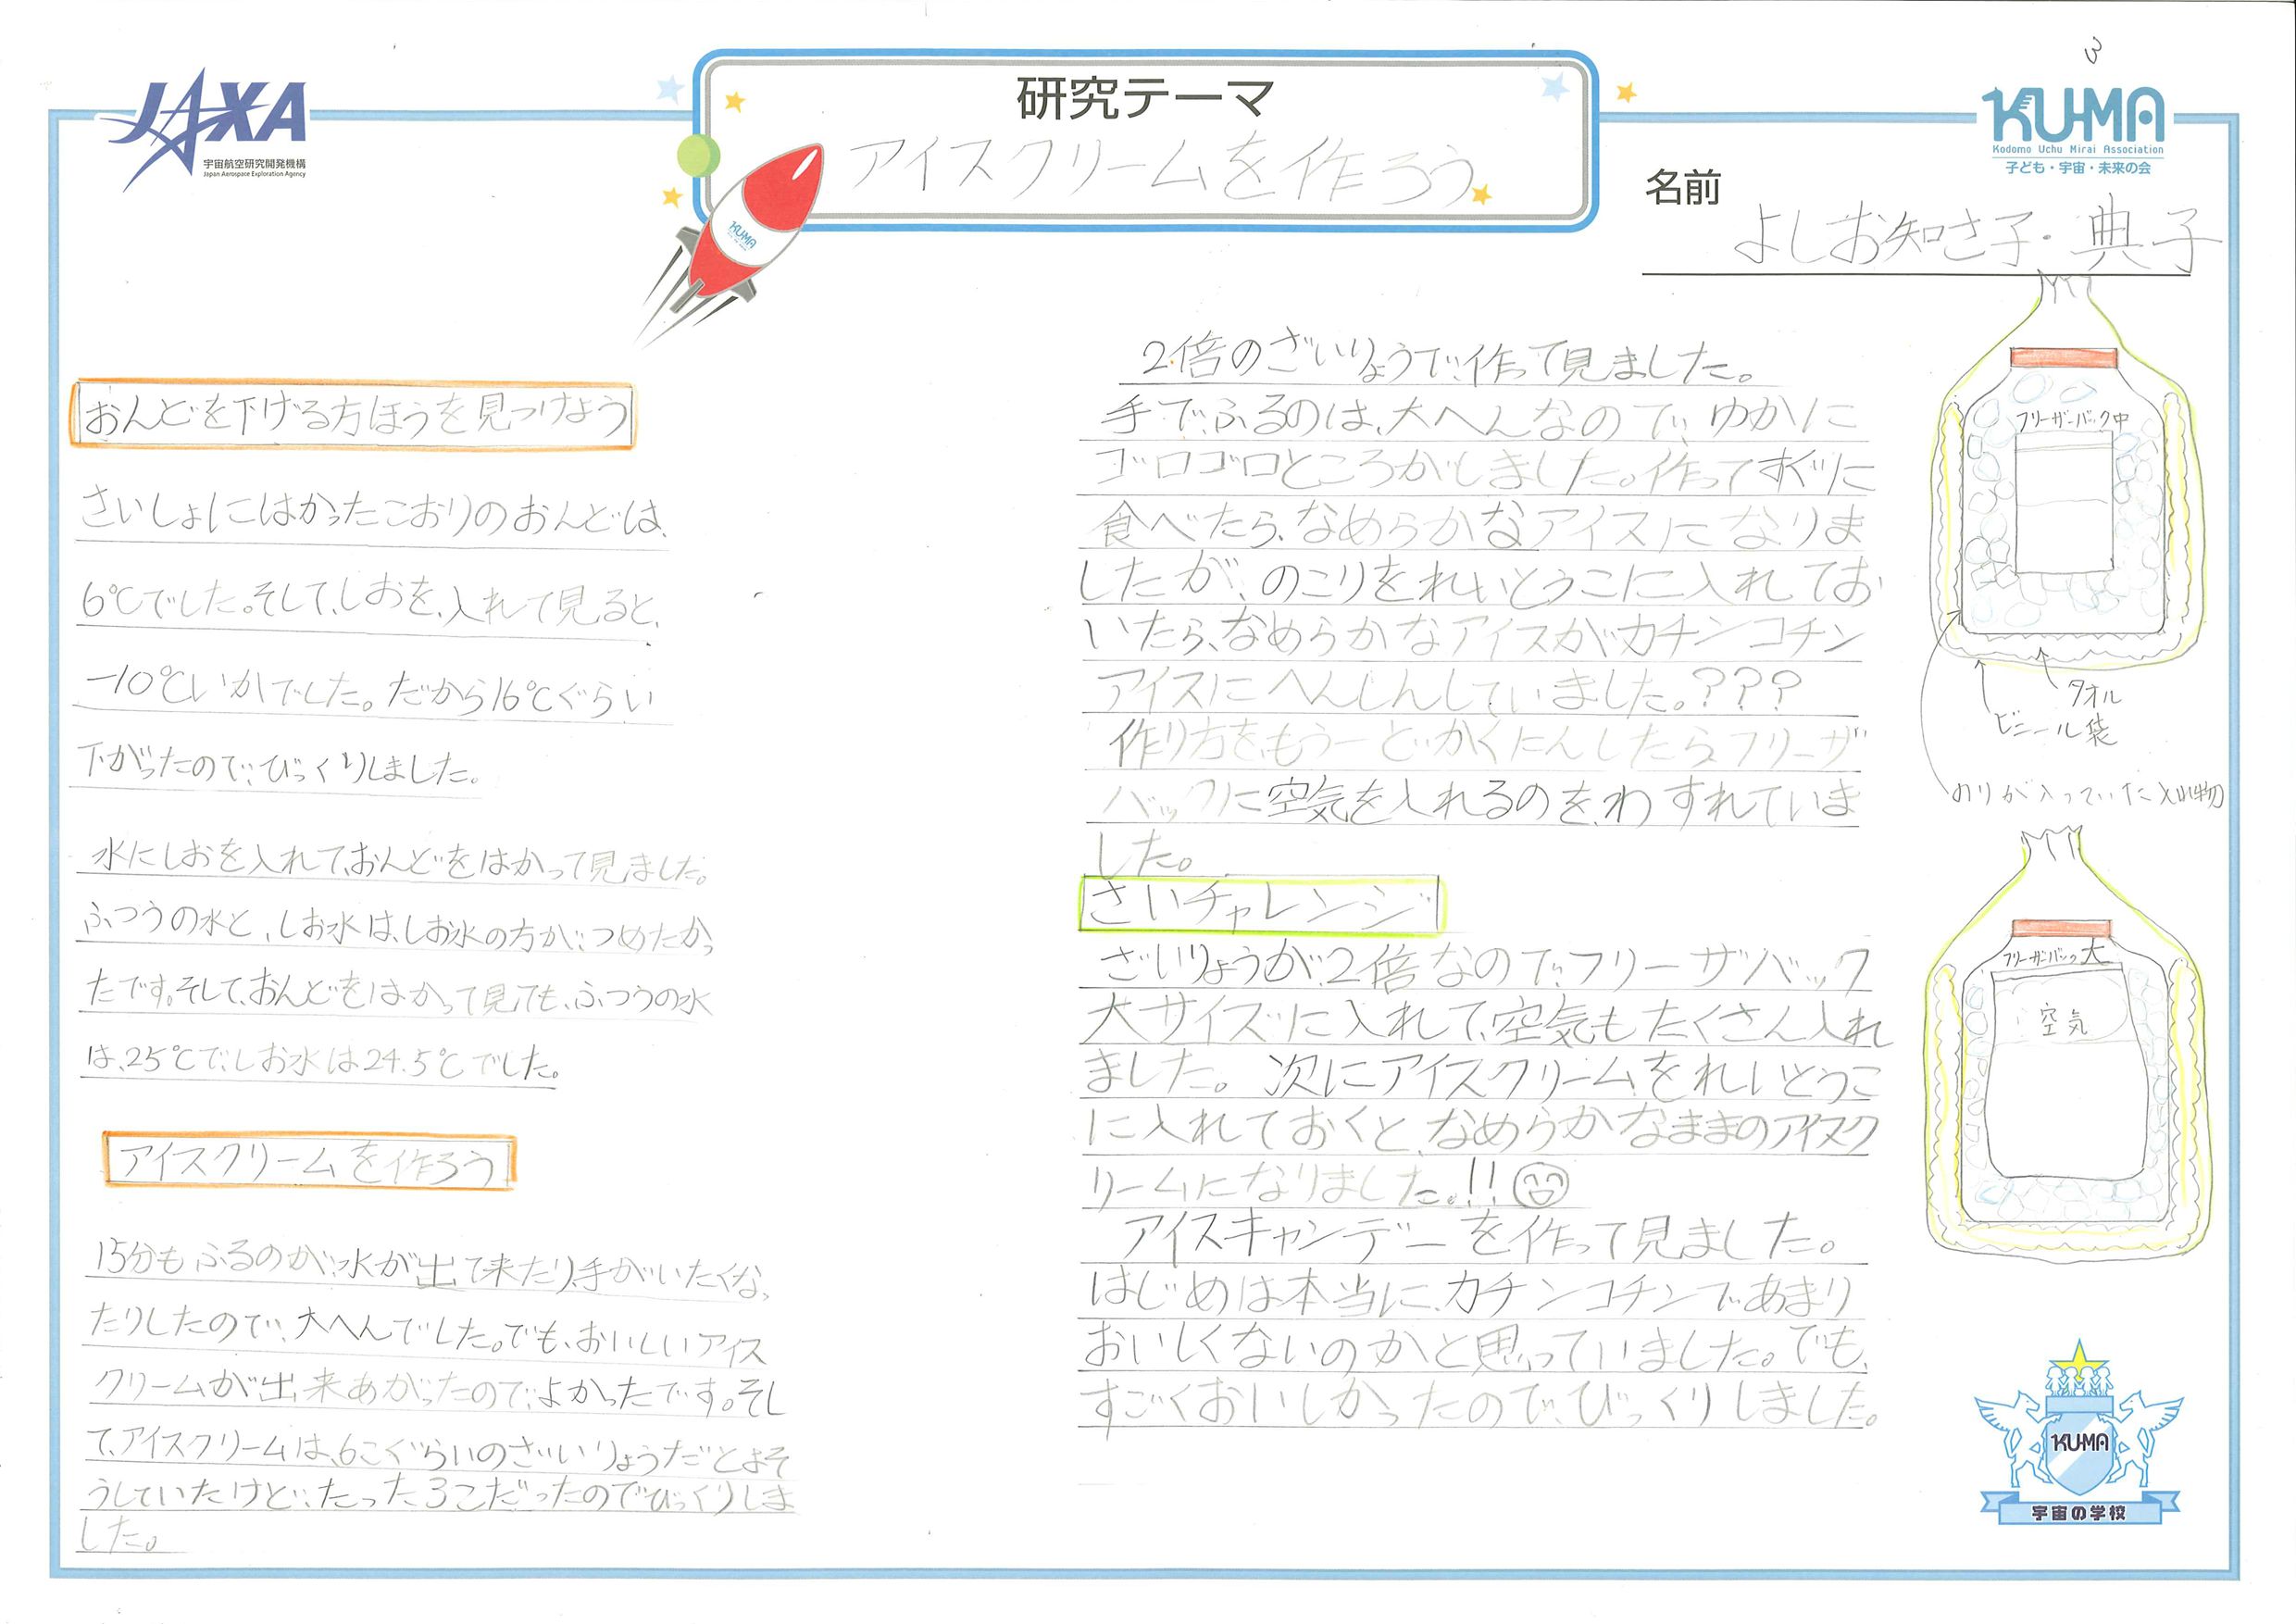 JAXA
宇宙航空研究開発機構
Japan Aerospace Exploration Agency
研究テーマ
アイスクリームを作ろう
KUMA
3
KUMA
Kodomo Uchu Mirai Association
子ども・宇宙・未来の会
名前
よしお知さ子・典子
おんどを下げる方ほうを見つけよう
さいしょにはかったこおりのおんどは、
6℃でした。そして、しおを、入れて見ると、
-10℃いかでした。だから16℃ぐらい
下がったので、びっくりしました。
水にしおを入れて、おんどをはかって見ました。
ふつうの水と、しお水は、しお水の方が、つめたかっ
たです。そして、おんどをはかって見ても、ふつうの水
は、25℃で、しお水は24.5℃でした。
アイスクリームを作ろう
15分もふるのが、水が出て来たり、手がいたくなっ
たりしたので、大へんでした。でも、おいしいアイス
クリームが出来あがったので、よかったです。そし
て、アイスクリームは、6こぐらいのざいりょうだとよそ
うしていたけど、たった3こだったのでびっくりしま
した。
2倍のざいりょうで、作って見ました。
手でふるのは、大へんなので、ゆかに
ゴロゴロところがしました。作ってすぐに
食べたら、なめらかなアイスになりま
したが、のこりをれいとうこに入れてお
いたら、なめらかなアイスがカチンコチン
アイスにへんしんしていました。???
作り方をもう一どかくにんしたらフリーザ
バックに空気を入れるのを、わすれていま
した。
さいチャレンジ
ざいりょうが、2倍なので、フリーザバック
大サイズに入れて、空気もたくさん入れ
ました。次にアイスクリームをれいとうこ
に入れておくと、なめらかなままのアイスク
リームになりました。!!
アイスキャンデーを作って見ました。
はじめは本当に、カチンコチンであまり
おいしくないのかと思っていました。でも、
すごくおいしかったので、びっくりしました。
フリーザーバック中
タオル
ビニール袋
のりが入っていた入れ物
フリーザーバック大
空気
KUMA
宇宙の学校